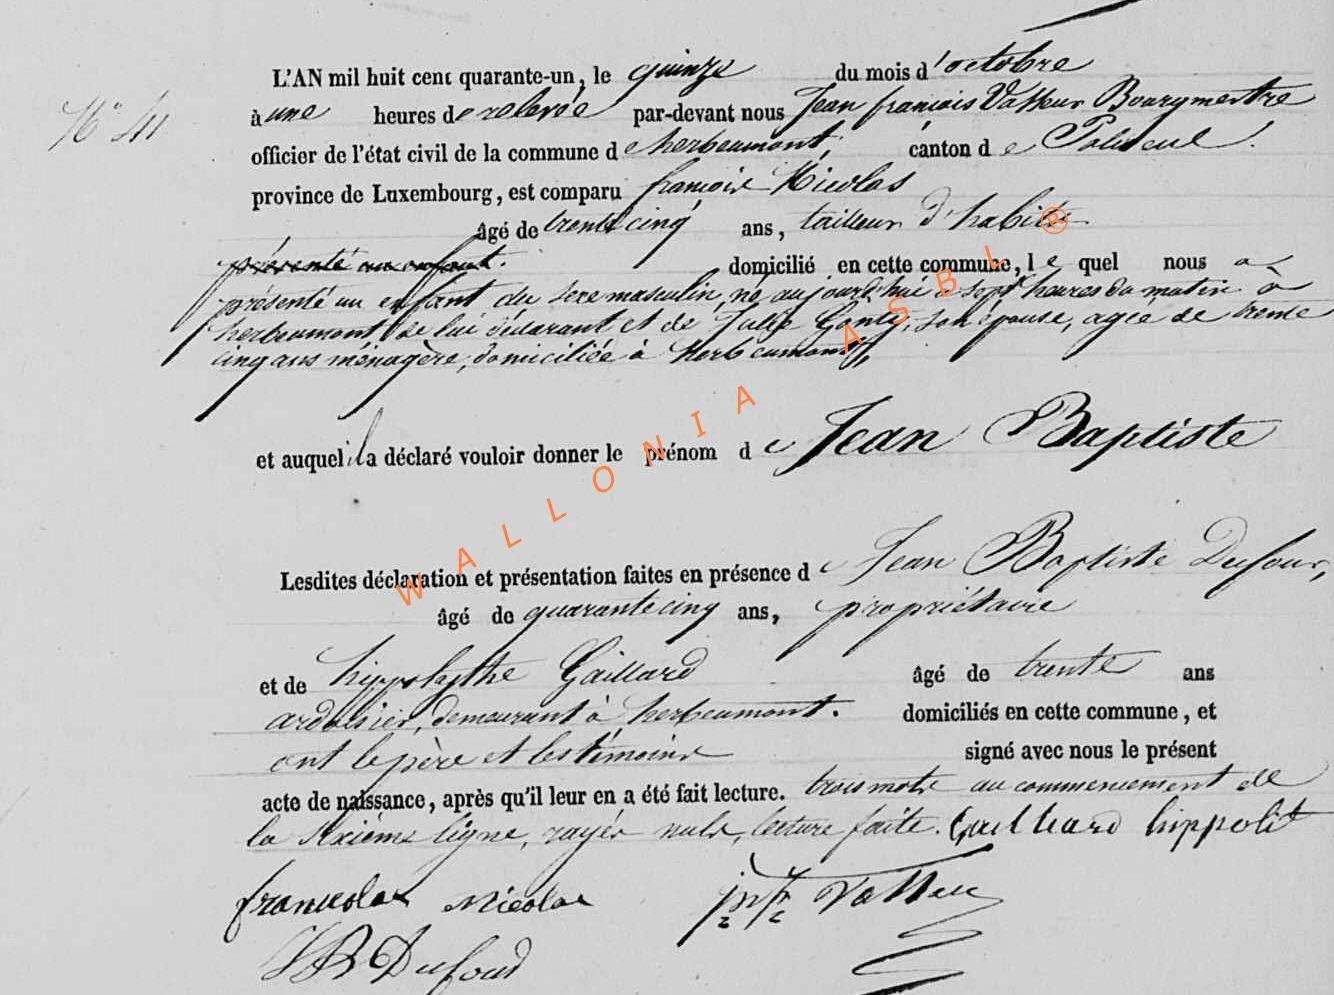 L'AN mil huit cent quarante-un, le quinze du mois d'octobre
N° 41
à une heures de relevée par-devant nous Jean francois Vasseur Bourgmestre
officier de l'état civil de la commune de herbeumont, canton de Paliseul.
province de Luxembourg, est comparu françois Nicolas
âgé de trente cinq ans, tailleur d'habits
présenté un enfant. domicilié en cette commune, le quel nous a
présenté un enfant du sexe masculin, né aujourd'hui à sept heures du matin à
herbeumont de lui déclarant et de Julie son épouse, agée de trente
cinq ans ménagère, domiciliée à herbeumont,
et auquel il a déclaré vouloir donner le prénom de Jean Baptiste
Lesdites déclaration et présentation faites en présence de Jean Baptiste Dufour,
âgé de quarante cinq ans, propriétaire
et de hippolythe Gaillard âgé de trente ans
ardoisier, demeurant à herbeumont. domiciliés en cette commune, et
ont le père et les témoins signé avec nous le présent
acte de naissance, après qu'il leur en a été fait lecture. trois mots au commencement de
la sixième ligne, rayés nuls, lecture faite. Gailliard hippolit
Nicolas Vasseur
JB Dufour
WALLONIA ASBL ®